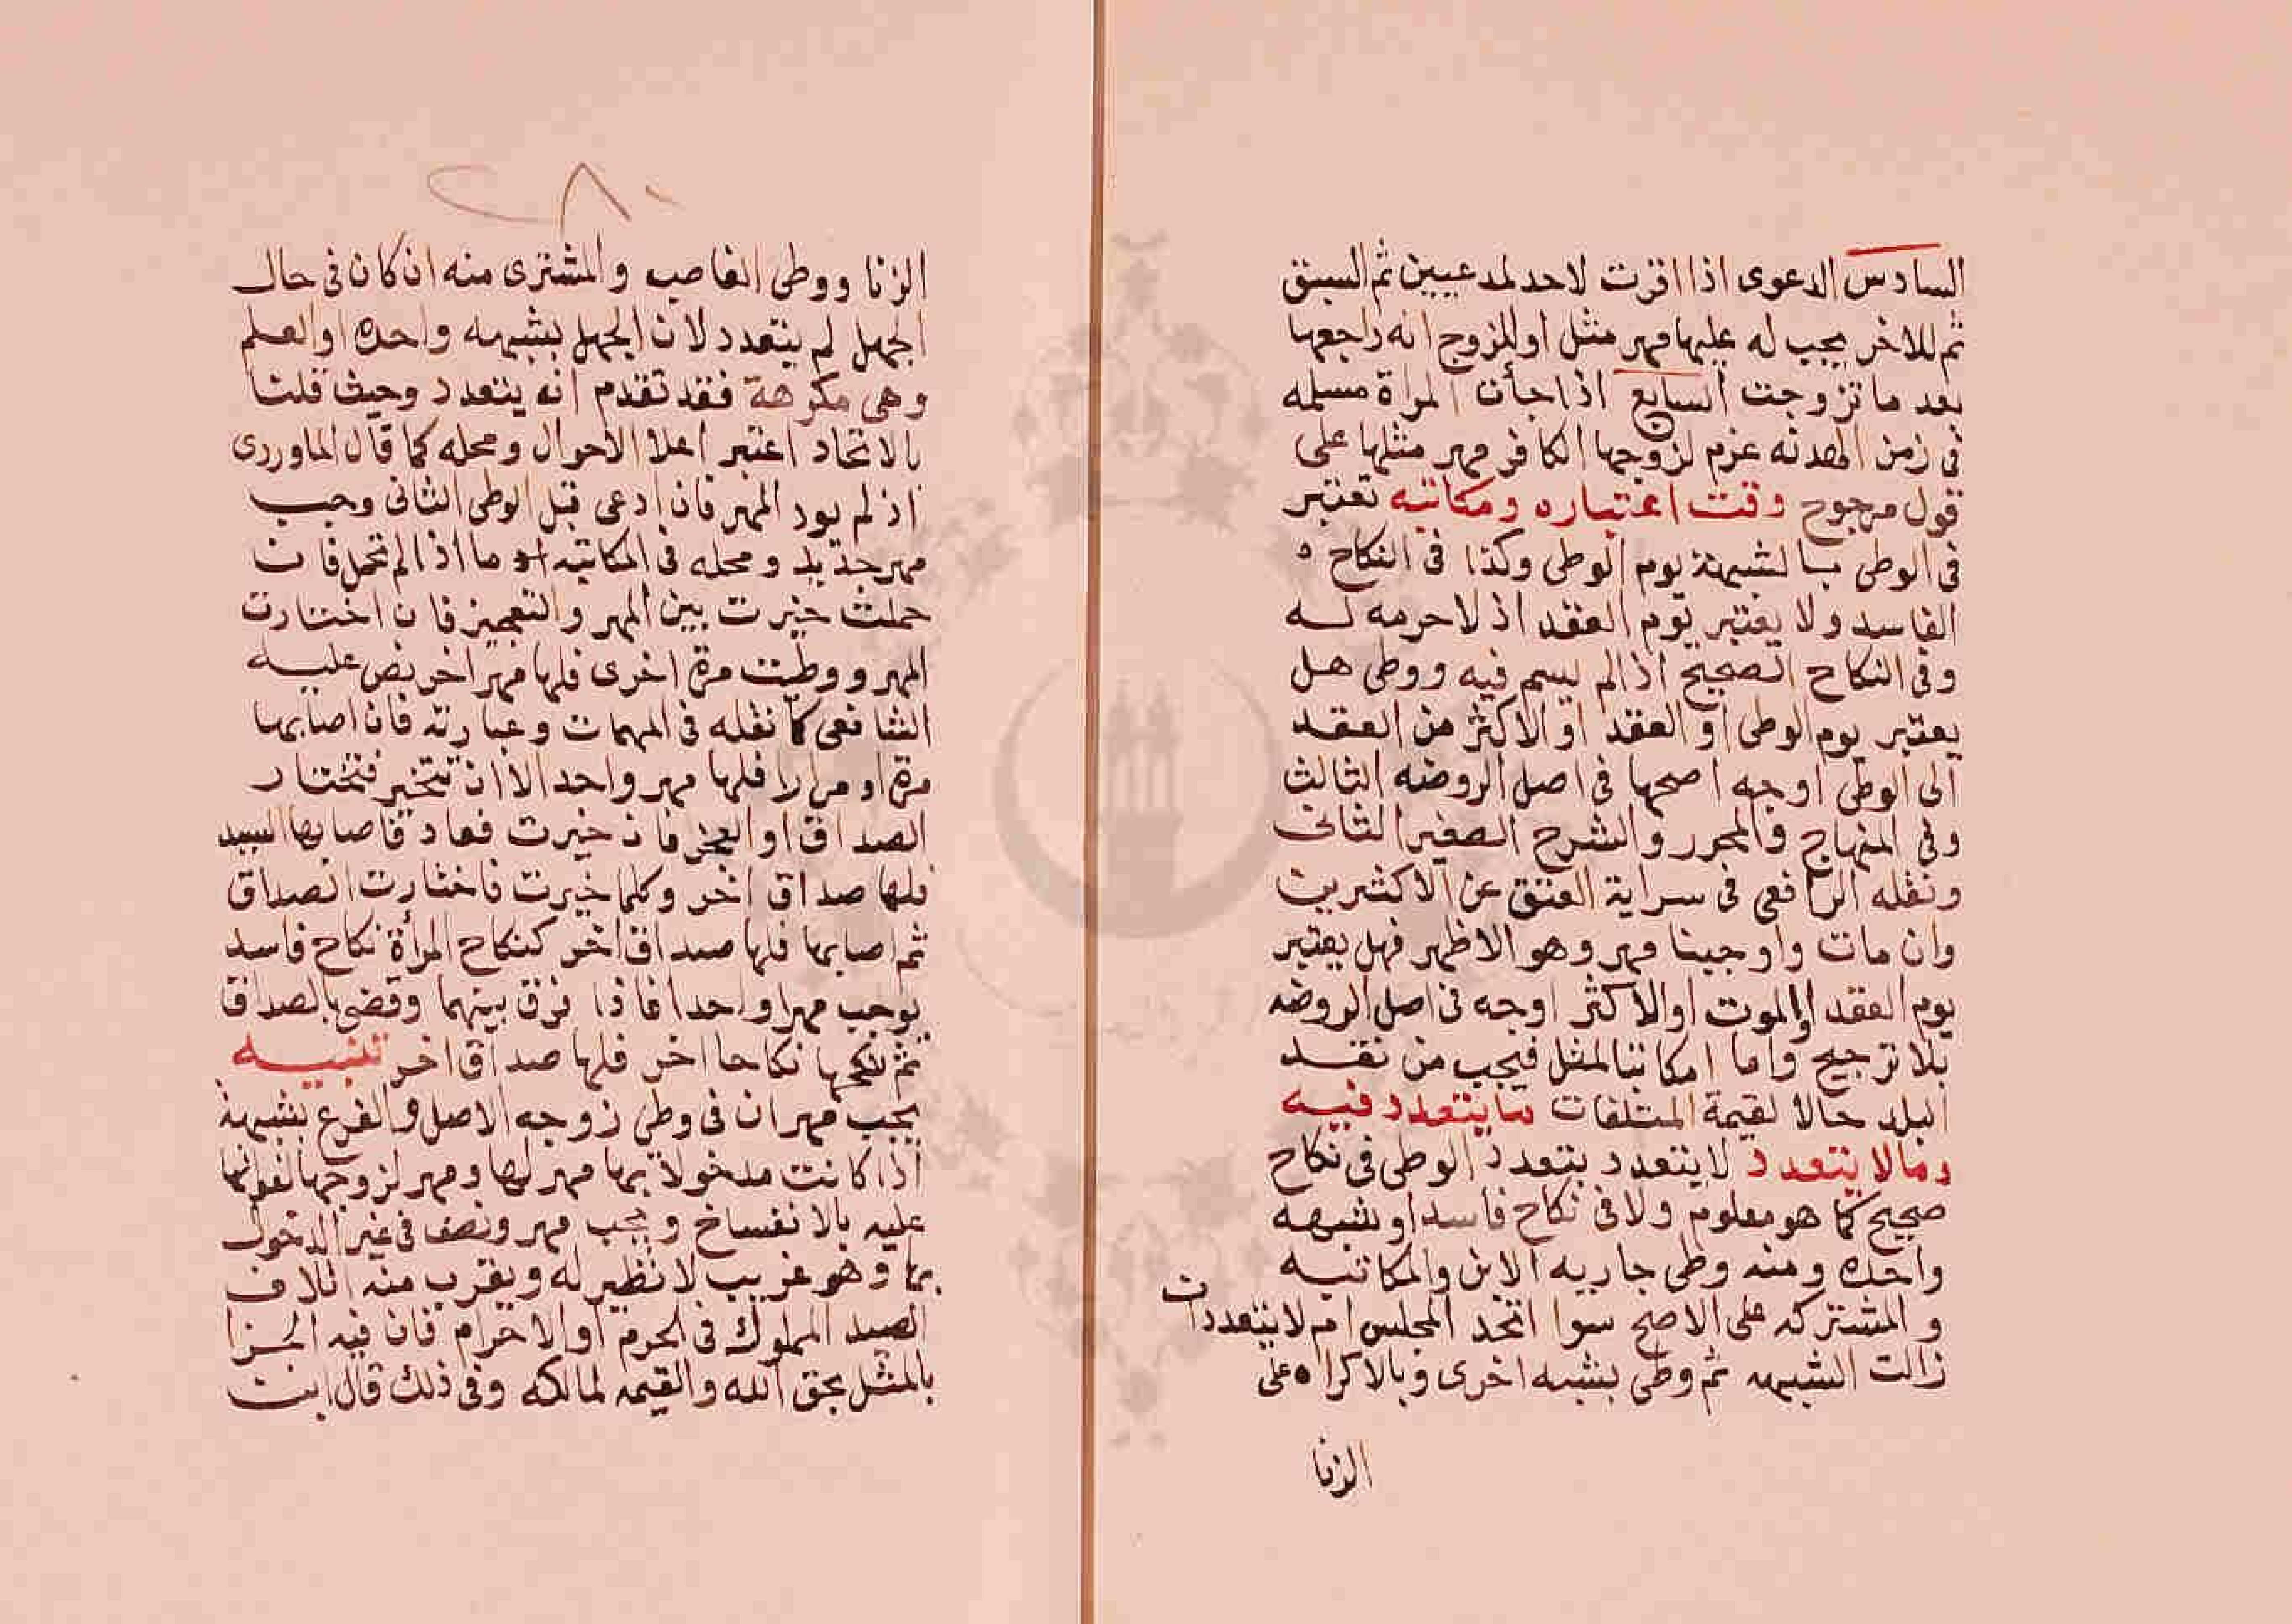 السادس الدعوى اذا اقرت لاحد لمدعيين ثم السبق
ثم للاخر يجب له عليها مهر مثل اولمزوج انه راجعها
بعد ما تزوجت السابع اذا جأت المراة مسلمه
فى زمن الهدنه غرم لزوجها الكافر مهر مثلها على
قول مرجوح وقت اعتباره ومكانه تعتبر
فى الوطى بالشبهة يوم الوطى وكذا فى النكاح ه
الفاسد ولا يعتبر يوم العقد اذ لا حرمه له
وفى النكاح الصحيح اذا لم يسم فيه ووطى هل
يعتبر يوم الوطى او العقد او الاكثر من العقد
الى الوطى اوجه اصحها فى اصل الروضه الثالث
وفى المنهاج والمحرر والشرح الصغير الثانى
ونقله الرافعى فى سراية العتق عن الاكثرين
وان مات واوجبنا مهر وهو الاظهر فهل يعتبر
يوم العقد او الموت او الاكثر اوجه فى اصل الروضه
بلا ترجيح واما امكانها لمثل فيجب من نقد
البلد حالا لقيمة المتلفات ما يتعدد فيه
وما لا يتعدد لا يتعدد بتعدد الوطى فى نكاح
صحيح كما هو معلوم ولا فى نكاح فاسد او شبهه
واحده ومنه وطى جاريه الابن والمكاتبه
والمشتركه على الاصح سوا اتحد المجلس ام لا يتعدد ان
زالت الشبهه ثم وطى بشبه اخرى وبالاكراه على
الزنا
٢٨٠
الزنا ووطى الغاصب والمشترى منه ان كان فى حال
الجهل لم يتعدد لان الجهل بشبهه واحده او العلم
وهى مكرهة فقد تقدم انه يتعدد وحيث قلنا
بالاتحاد اعتبر اعلا الاحوال ومحله كما قال الماوردى
اذ لم يود المهر فان ادعى قبل الوطى الثانى وجب
مهر جديد ومحله فى المكاتبه ما اذا لم تحمل فان
حملت خيرت بين المهر والتعجيز فان اختارت
المهر ووطيت مرة اخرى فلها مهر اخر نص عليه
الشافعى كما نقله فى المهمات وعبارته فان اصابها
مرة او مرارا فلها مهر واحد الا ان تتخير فتختار
الصداق او العجز فان خيرت فعاد فاصابها السيد
فلها صداق اخر وكلما خيرت فاختارت الصداق
ثم اصابها فلها صداق اخر كنكاح المرأة نكاح فاسد
يوجب مهرا واحدا فاذا فرق بينهما وقضى بالصداق
ثم نكحها نكاحا اخر فلها صداق اخر تنبيه
يجب مهران فى وطى زوجه الاصل والفرع بشبهة
اذا كانت مدخولا بها مهر لها ومهر لزوجها لفواتها
عليه بالانفساخ ويجب مهر ونصف فى غير الدخول
بها وهو غريب لا نظير له ويقرب منه اتلاف
الصيد المملوك فى الحرم او الاحرام فان فيه الجزا
بالمثل بحق الله والقيمه لمالكه وفى ذلك قال ابن